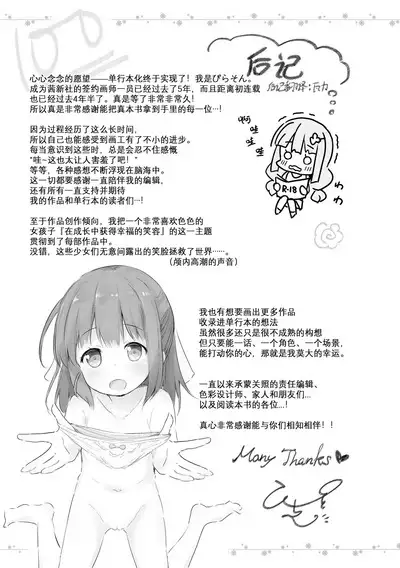 后记
R-18
心心念念的愿望——单行本化终于实现了！我是ぴらそん。
成为茜新社的签约画师一员已经过去了5年，而且距离初连载
也已经过去4年半了。真是等了非常非常久！
所以真的非常感谢能把真本书拿到手里的每一位…！
因为过程经历了这么长时间，
所以自己也能感受到画工有了不小的进步。
每当意识到这些时，总是会忍不住感慨
"哇~这也太让人害羞了吧！"
等等，各种感想不断浮现在脑海中。
这一切都要感谢一直陪伴我的编辑，
还有所有一直支持并期待
我的作品和单行本的读者们…！
至于作品创作倾向，我把一个非常喜欢色色的
女孩子『在成长中获得幸福的笑容』的这一主题
贯彻到了每部作品中。
没错，这些少女们无意间露出的笑脸拯救了世界……。
（颅内高潮的声音）
我也有想要画出更多作品
收录进单行本的想法
虽然很多还只是很不成熟的构想
但只要能一话、一个角色、一个场景，
能打动你的心，那就是我莫大的幸运。
一直以来承蒙关照的责任编辑、
色彩设计师、家人和朋友们…
以及阅读本书的各位…！
真心非常感谢能与你们相知相伴！！
Many Thanks